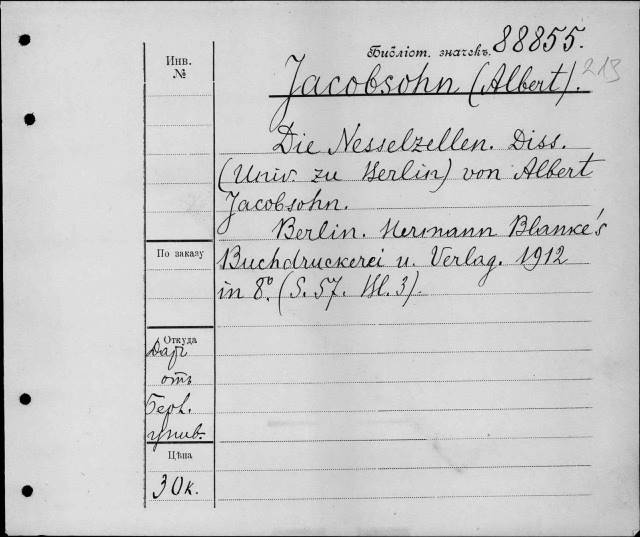 Библіот. значекъ 88855.
213
Инв.
№
Jacobsohn (Albert).
Die Nesselzellen. Diss.
(Univ. zu Berlin) von Albert
Jacobsohn.
Berlin. Hermann Blanke's
По заказу
Buchdruckerei u. Verlag. 1912
in 8º. (S. 57. Bl. 3).
Откуда
Даръ
отъ
Берл.
унив.
Цѣна
30к.